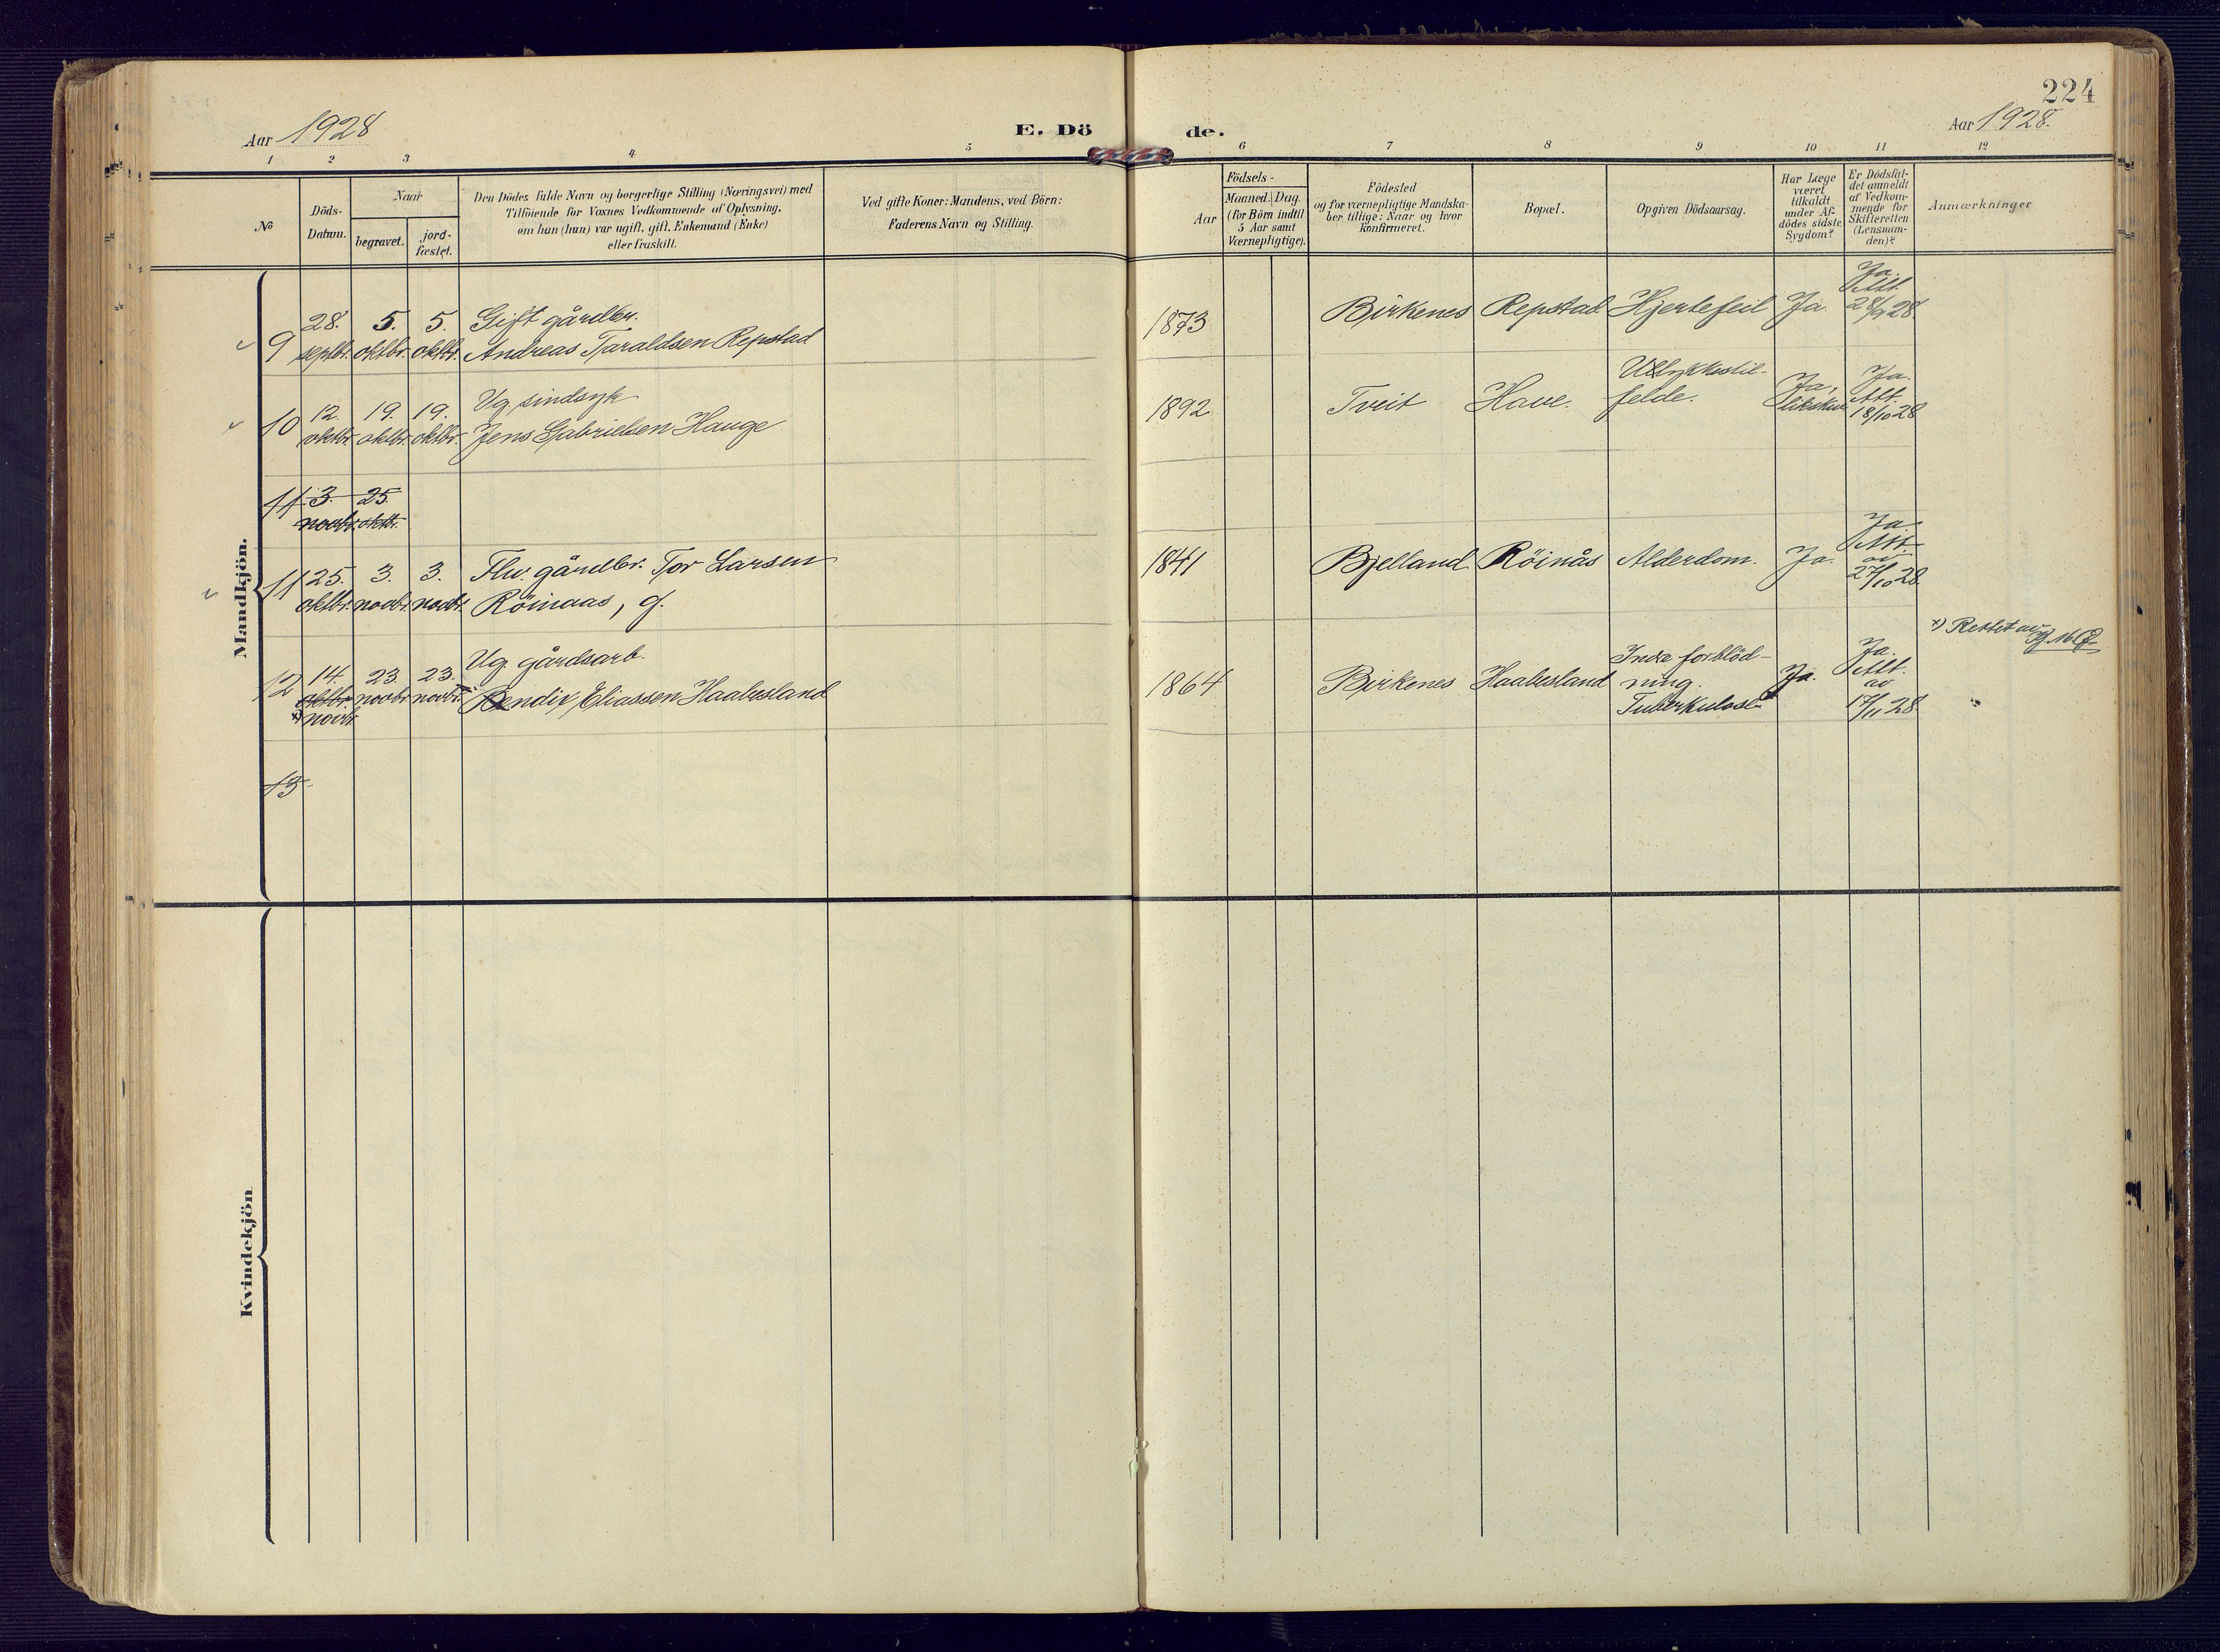 224
Aar 1928
E. Dö
de.
Aar 1928.
1 2 3 4 5 6 7 8 9 10 11 12
№
Döds-
Datum.
Naar
begravet.
jord-
fæstet.
Den Dödes fulde Navn og borgerlige Stilling (Næringsvei) med
Tilföiende for Voxnes Vedkommende af Oplysning,
om han (hun) var ugift, gift, Enkemand (Enke)
eller fraskilt.
Ved gifte Koner: Mandens, ved Börn:
Faderens Navn og Stilling.
Aar
Födsels-
Maaned. Dag.
(for Börn indtil
5 Aar samt
Værnepligtige).
Födested
og for værnepligtige Mandska-
ber tillige: Naar og hvor
konfirmeret.
Bopæl.
Opgiven Dödsaarsag.
Har Læge
været
tilkaldt
under Af-
dödes sidste
Sygdom?
Er Dödsfal-
det anmeldt
af Vedkom-
mende for
Skifteretten
(Lensman-
den)?
Anmærkninger
Mandkjön.
9
28.
septbr.
5.
oktbr.
5.
oktbr.
Gift gårdbr.
Andreas Taraldsen Repstad
1873
Birkenes
Repstad
Hjertefeil
Ja.
Ja.
Att.
28/9 28
10
12.
oktbr.
19.
oktbr.
19.
oktbr.
Ug. sindsyk
Jens Gabrielsen Hauge
1892
Tveit
Have.
Ulykkestil-
felde.
Ja,
likskue
Ja.
Att.
18/10 28
11
3.
novbr.
25.
oktbr.
11
25.
oktbr.
3.
novbr.
3.
novbr.
Flv. gårdbr. Tor Larsen
Röinaas, g.
1841
Bjelland
Röinås
Alderdom.
Ja.
Ja.
Att.
av
27/10 28.
12
14.
oktbr.
x) novbr.
23.
novbr.
23.
novbr.
Ug. gårdsarb.
Bendix Eliassen Haabesland
1864
Birkenes
Haabesland
Indre forblöd-
ning.
Tuberkulose
Ja.
Ja.
Att.
av
17/11 28.
x) Rettet av
13
Kvindekjön